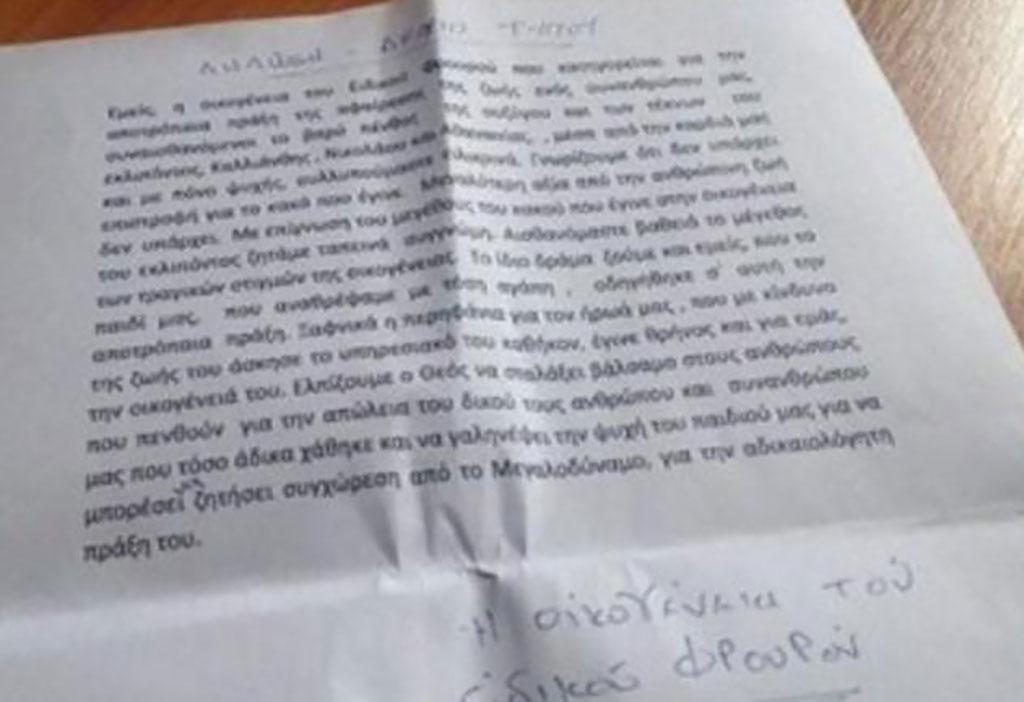 ΔΗΛΩΣΗ - ΔΕΛΤΙΟ ΤΥΠΟΥ
Εμείς, η οικογένεια του Ειδικού Φρουρού που κατηγορείται για την
αποτρόπαια πράξη της αφαίρεσης της ζωής ενός συνανθρώπου μας,
συναισθανόμενοι το βαρύ πένθος της συζύγου και των τέκνων του
εκλιπόντος, Καλλιάνθης, Νικολάου και Αθανασίας, , μέσα από την καρδιά μας
και με πόνο ψυχής, συλλυπούμαστε ειλικρινά. Γνωρίζουμε ότι δεν υπάρχει
επιστροφή για το κακό που έγινε. Μεγαλύτερη αξία από την ανθρώπινη ζωή
δεν υπάρχει. Με επίγνωση του μεγέθους του κακού που έγινε στην οικογένεια
του εκλιπόντος ζητάμε ταπεινά συγγνώμη. Αισθανόμαστε βαθειά το μέγεθος
των τραγικών στιγμών της οικογένειας. Το ίδιο δράμα ζούμε και εμείς, που το
παιδί μας, που αναθρέψαμε με τόση αγάπη , οδηγήθηκε σ' αυτή την
αποτρόπαια πράξη. Ξαφνικά η περηφάνια για τον ήρωά μας , που με κίνδυνο
της ζωής του άσκησε το υπηρεσιακό του καθήκον, έγινε θρήνος και για εμάς,
την οικογένειά του. Ελπίζουμε ο Θεός να σταλάξει βάλσαμο στους ανθρώπους
που πενθούν για την απώλεια του δικού τους ανθρώπου και συνανθρώπου
μας που τόσο άδικα χάθηκε και να γαληνέψει την ψυχή του παιδιού μας για να
μπορέσει να ζητήσει συγχώρεση από το Μεγαλοδύναμο, για την αδικαιολόγητη
πράξη του.
Η οικογένεια του
ειδικού φρουρού